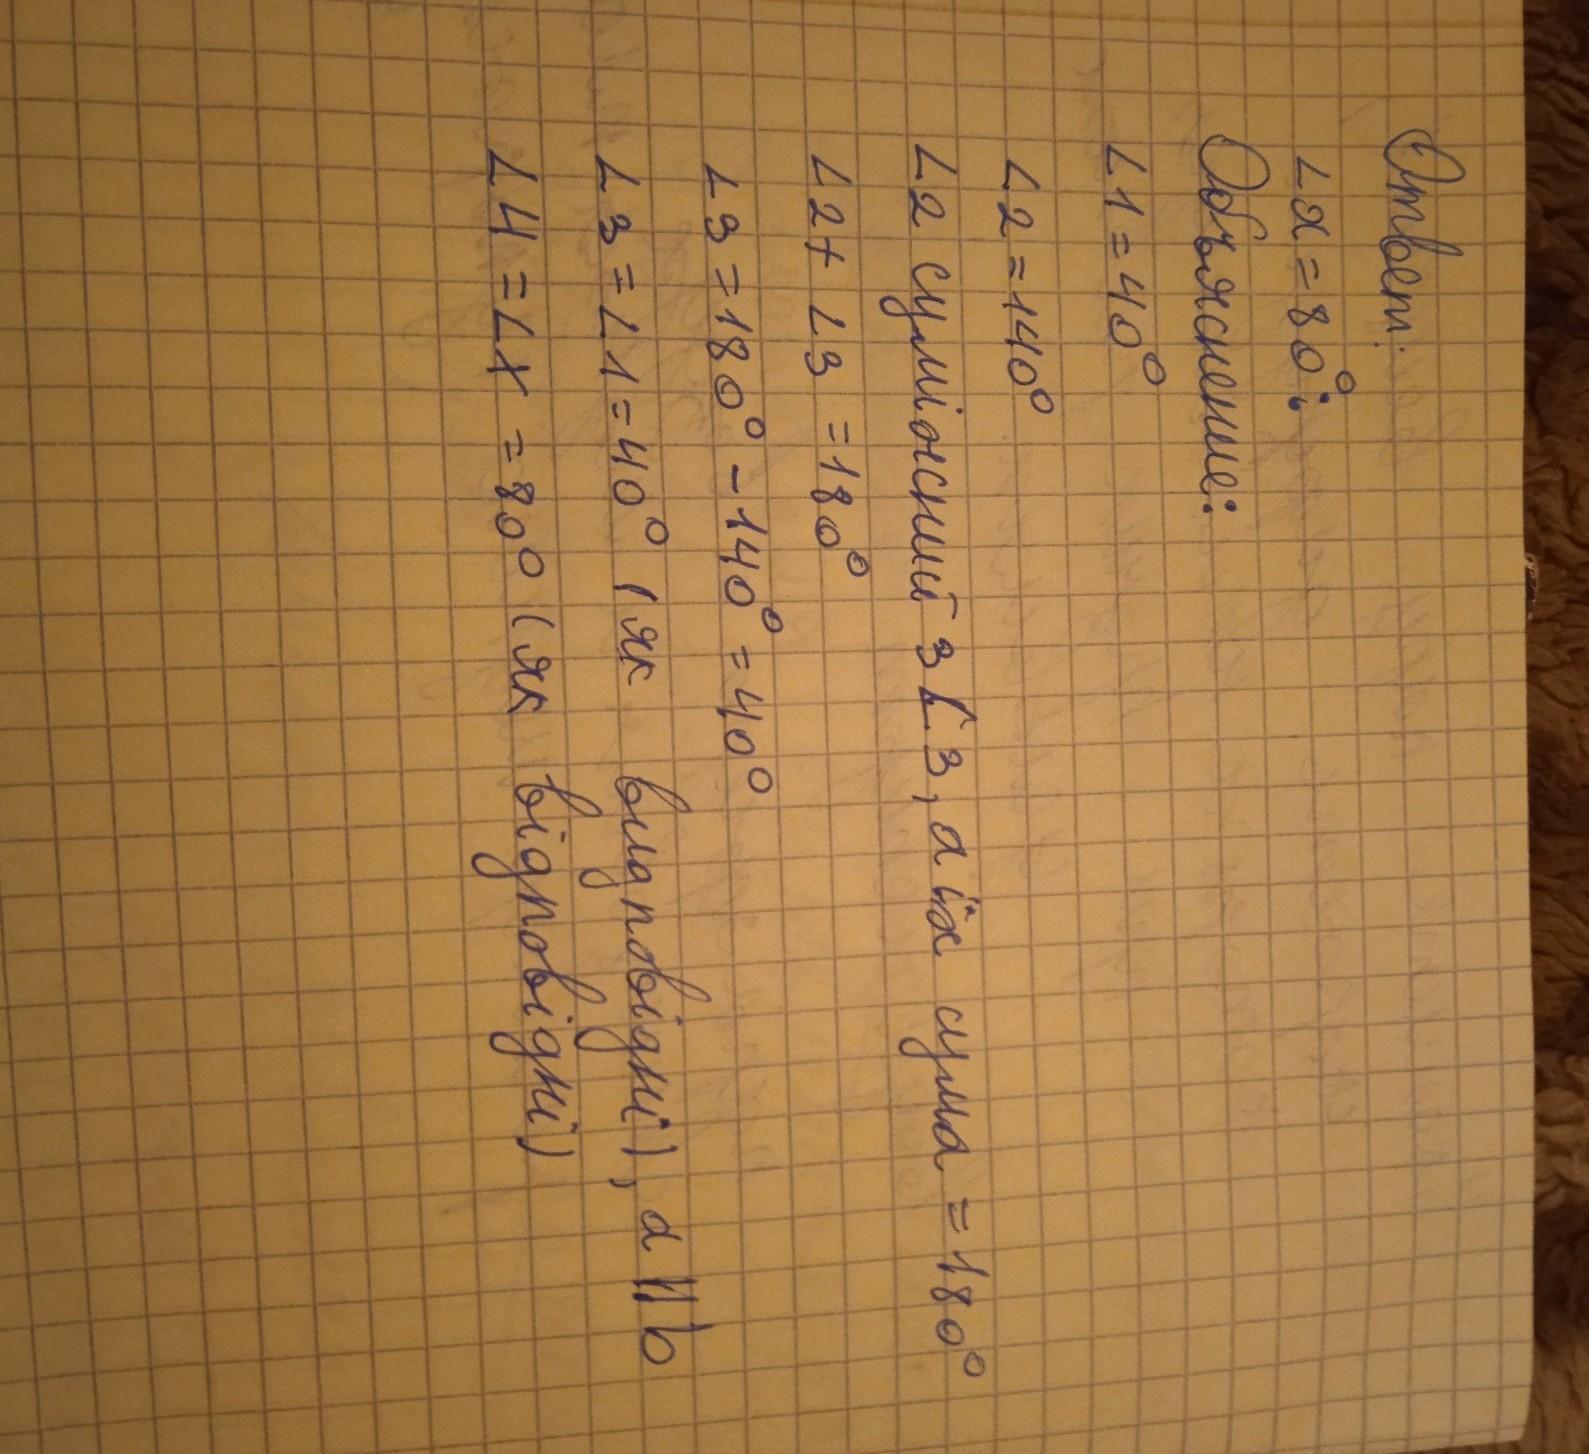 Ответ:
∠x = 80°;
Объяснение:
∠1 = 40°
∠2 = 140°
∠2 суміжний з ∠3, а їх сума = 180°
∠2 + ∠3 = 180°
∠3 = 180° - 140° = 40°
∠3 = ∠1 = 40° (як видповідні), a || b
∠4 = ∠x = 80° (як відповідні)